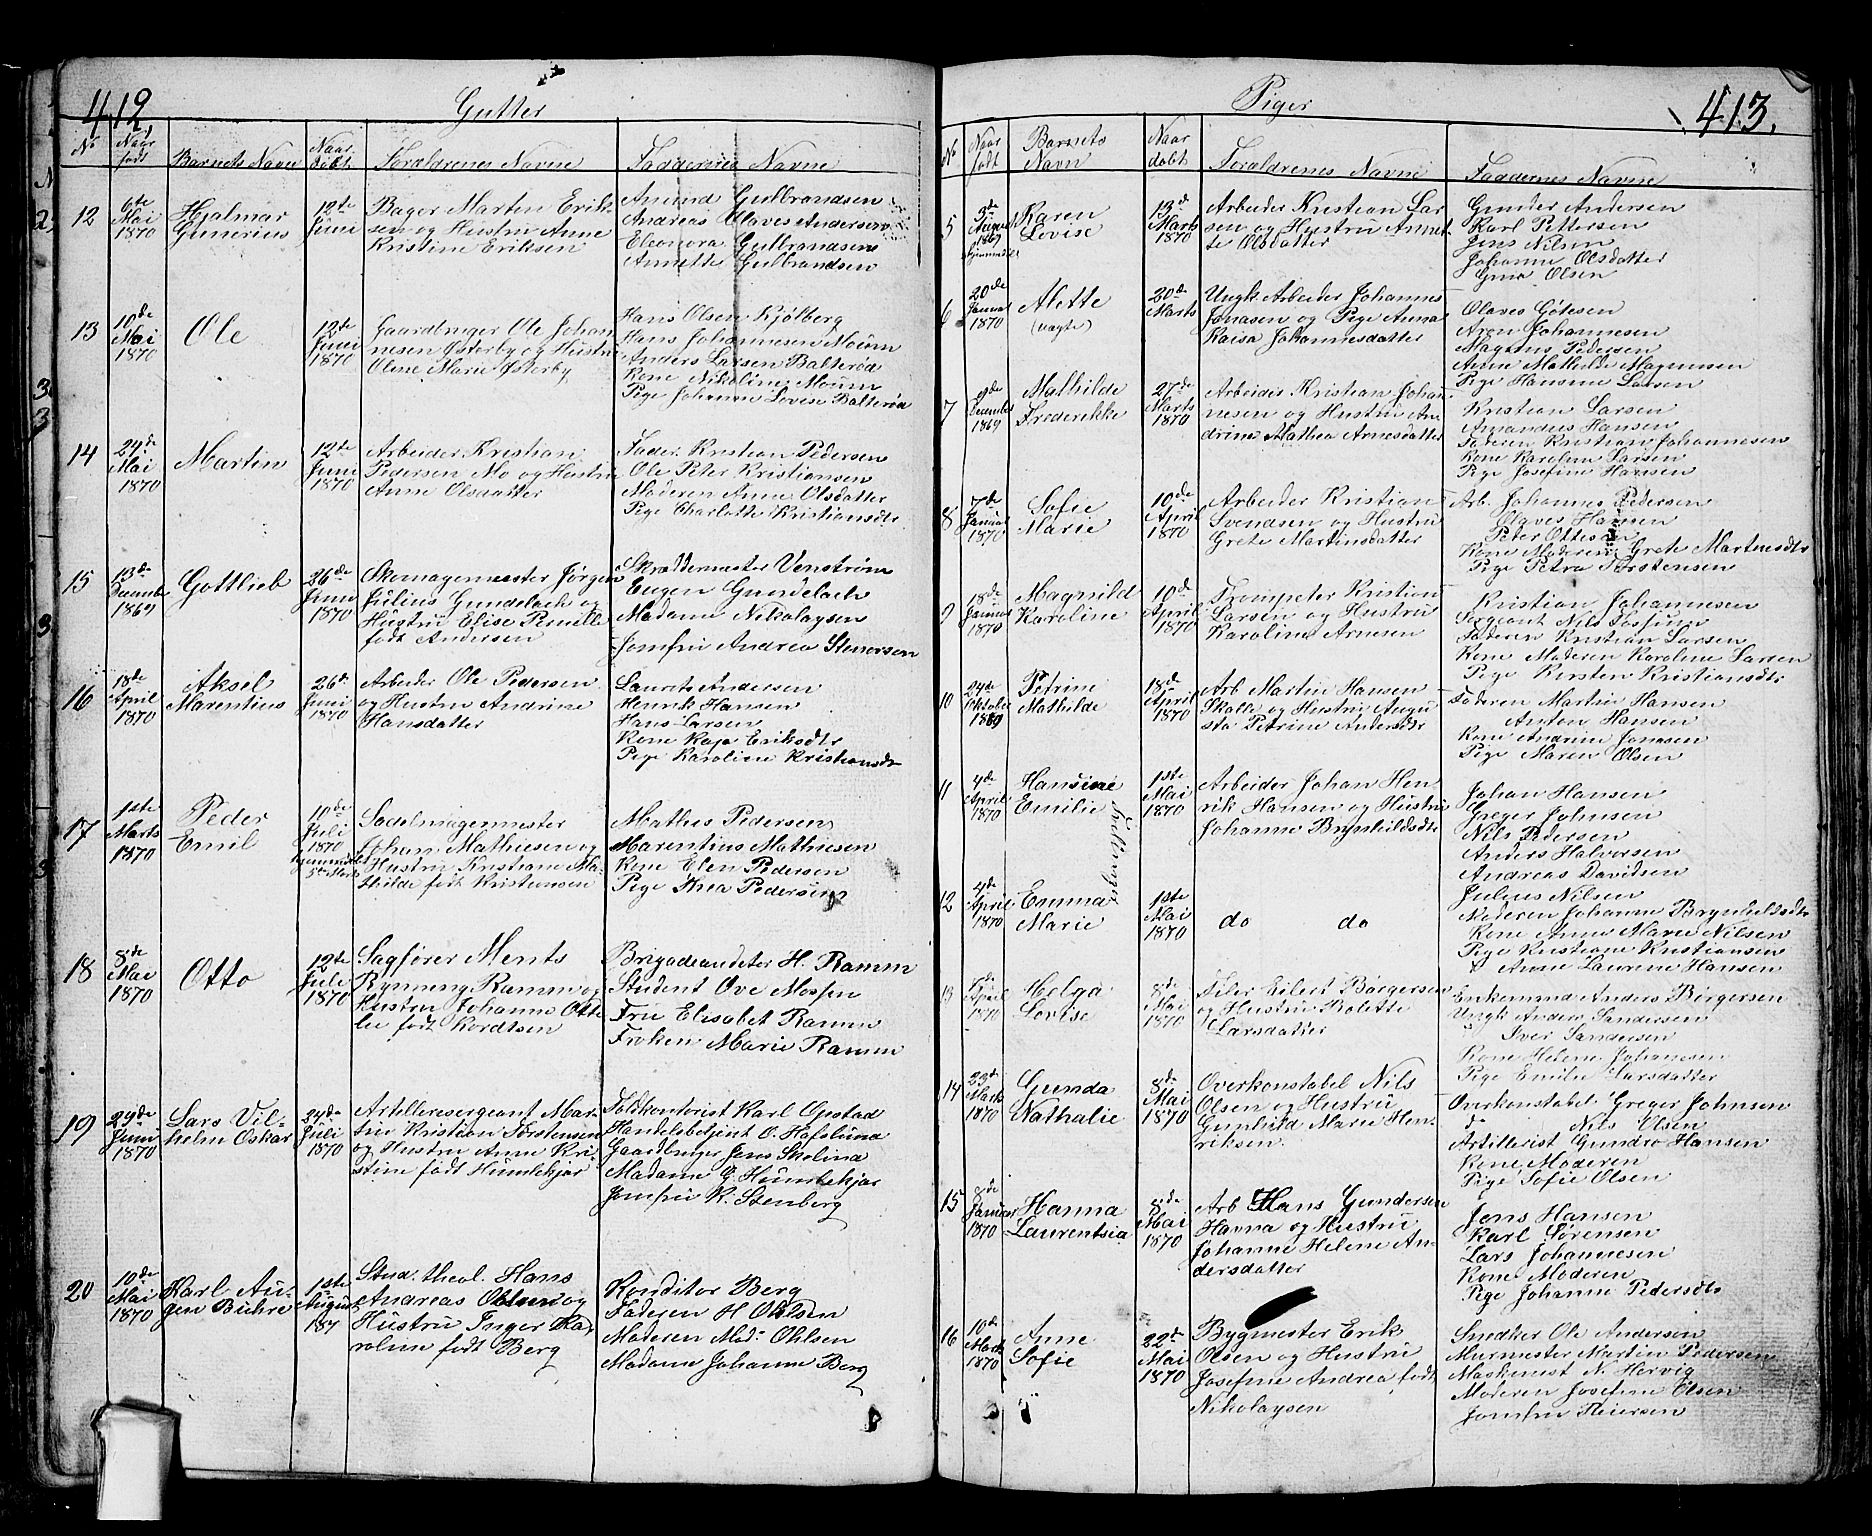 412
Gutter
No
Naar født
Barnets Navn
Naar døbt
Forældrenes Navne
Faddernes Navne
12
6te Mai 1870
Hjalmar Gunerius
12te Juni
Bager Martin Erik-
sen og Hustru Anne
Kristine Eriksen
Amund Gulbrandsen
Andreas Olaves Andersen
Eleonora Gulbrandsen
Annette Gulbrandsen
13
10de Mai 1870
Ole
12te Juni 1870
Gaardbruger Ole Johan
nesen Østerby og Hustru
Oline Marie Østerby
Hans Olsen Kjølberg
Hans Johannesen Moum
Anders Larsen Balterød
Kone Nikoline Moum
Pige Johanne Lovise Balterød
14
24de Mai 1870
Martin
12te Juni 1870
Arbeider Kristian
Pedersen Mo og Hustru
Anne Olsdatter
Fader Kristian Pedersen
Ole Peter Kristiansen
Moderen Anne Olsdatter
Pige Charlotte Kristiansdtr
15
13de Decembr 1869
Gottlieb
26de Juni 1870
Skomagermester Jørgen
Julius Gundelach og
Hustru Elise Pernille
født Andersen
Skræddermester Venstrøm
Eugen Gundelach
Madame Nikolaysen
Jomfru Andrea Stenersen
16
18de April 1870
Aksel Marentius
26de Juni 1870
Arbeider Ole Pedersen
og Hustru Andrine
Hansdatter
Laurits Andersen
Henrik Hansen
Hans Larsen
Kone Kaja Eriksdtr
Pige Karoline Kristiansdtr
17
1ste Marts 1870
Peder Emil
10de Juli 1870
Hjemmedøbt 5te Marts
Sadelmagermester
Johan Mathiesen og
Hustru Kristiane Ma-
thilde født Kristiansen
Mathis Pedersen
Marentius Mathiesen
Kone Elen Pedersen
Pige Thea Pedersen
18
8de Mai 1870
Otto
12te Juli 1870
Sagfører Ments
Rynning Ramm og
Hustru Johanne Otte
lie født Kordtsen
Brigadeauditør H. Ramm
Student Ove Mossin
Frue Elisabet Ramm
Frøken Marie Ramm
19
29de Juni 1870
Lars Vil-
helm Oskar
24de Juli 1870
Artillerisergeant Mar-
tin Kristian Torstensen
og Hustru Anne Kri-
stine født Humlekjær
Toldkontorist Karl Opstad
Handelsbetjent O. Hafslund
Gaardbruger Jens Skolina
Madame G. Humlekjær
Jomfru K. Stenberg
20
10de Mai 1870
Karl Au-
gen Buhre
1ste August 187
Stud. theol. Hans
Andreas Ohlsen og
Hustru Inger Ka-
roline født Berg
Konditor Berg
Faderen H Ohlsen
Moderen Mad. Ohlsen
Madame Johanne Berg
413.
Piger
No
Naar født
Barnets Navn
Naar døbt
Forældrenes Navne
Faddernes Navne
5
3de August 1869
Karen Lovise
13de Marts 1870
Arbeider Kristian Lar
sen og Hustru Annet-
te Olsdatter
Gunder Andersen
Karl Pettersen
Jens Nilsen
Johanne Olsdatter
Gina Olsen
6
20de Januar 1870
Alette
(uægte)
20de Marts
Ungk Arbeider Johannes
Jonasen og Pige Anna
Kaisa Johannesdatter
Olaves Gøtesen
Aron Johannesen
Magnus Pedersen
Anne Mathilde Magnussen
Pige Hansine Larsen
7
9de December 1869
Mathilde Frederikke
27de Marts 1870
Arbeider Kristian Johan
nesen og Hustru An-
drine Mathea Arnesdatter
Kristian Larsen
Amandus Hansen
Faderen Kristian Johannesen
Kone Karoline Larsen
Pige Josefine Hansen
8
7de Januar 1870
Sofie Marie
10de April 1870
Arbeider Kristian
Svendsen og Hustru
Grete Martinsdatter
Arb Johannes Pedersen
Olaves Hansen
Peter Ottesen
Kone Moderen Grete Martinsdtr
Pige Petra Torstensen
9
18de Januar 1870
Magnild Karoline
10de April 1870
Trompeter Kristian
Larsen og Hustru
Karoline Arnesen
Kristian Johannesen
Sergeant Nils Tosfinn
Faderen Kristian Larsen
Kone Moderen Karoline Larsen
Pige Kirsten Kristiansdtr
10
24de Oktober 1869
Petrine Mathilde
18de April 1870
Arb Martin Hansen
Skalle og Hustru Augu
sta Petrine Andersdtr
Faderen Martin Hansen
Anton Hansen
Kone Andrine Jonasen
Pige Maren Olsen
11
4de April 1870
Hansine Emilie
Tvillinger
1ste Mai 1870
Arbeider Johan Hen
rik Hansen og Hustru
Johanne Brynhildsdtr
Johan Hansen
Greger Johnsen
Nils Pedersen
Anders Halvorsen
Andreas Davidsen
12
4de April 1870
Emma Marie
1ste Mai 1870
do do
Julius Nilsen
Moderen Johanne Brynhildsdtr
Kone Anne Marie Nilsen
Pige Kristiane Kristiansen
Anne Laurene Hansen
13
April 1870
Helga Lovise
8de Mai 1870
Filer Eilert Børgersen
og Hustru Bolette
Larsdatter
Enkemand Anders Børgersen
Ungk Anders Sandersen
Iver Sandersen
Kone Helene Johanesen
Pige Emilie Larsdatter
14
23de Marts 1870
Gunda Nathalie
8de Mai 1870
Overkonstabel Nils
Olsen og Hustru
Gunhild Marie Hen-
riksen.
Overkonstabel Greger Johnsen
do Nils Olsen
Artillerist Gundro Hansen
Kone Moderen
Pige Sofie Olsen
15
8de Januar 1870
Hanna Laurentsia
8de Mai 1870
Arb Hans Gundersen
Havna og Hustru
Johanne Helene An-
dersdatter
Jens Hansen
Karl Sørensen
Lars Johannesen
Kone Moderen
Pige Johanne Pedersdtr
16
10de Marts 1870
Anne Sofie
22de Mai 1870
Bygmester Erik
Olsen og Hustru
Josefine Andrea født
Nikolaysen
Snedker Ole Andersen
Murmester Martin Pedersen
Maskinist N. Hervig
Moderen Josefine Olsen
Jomfru Theiersen